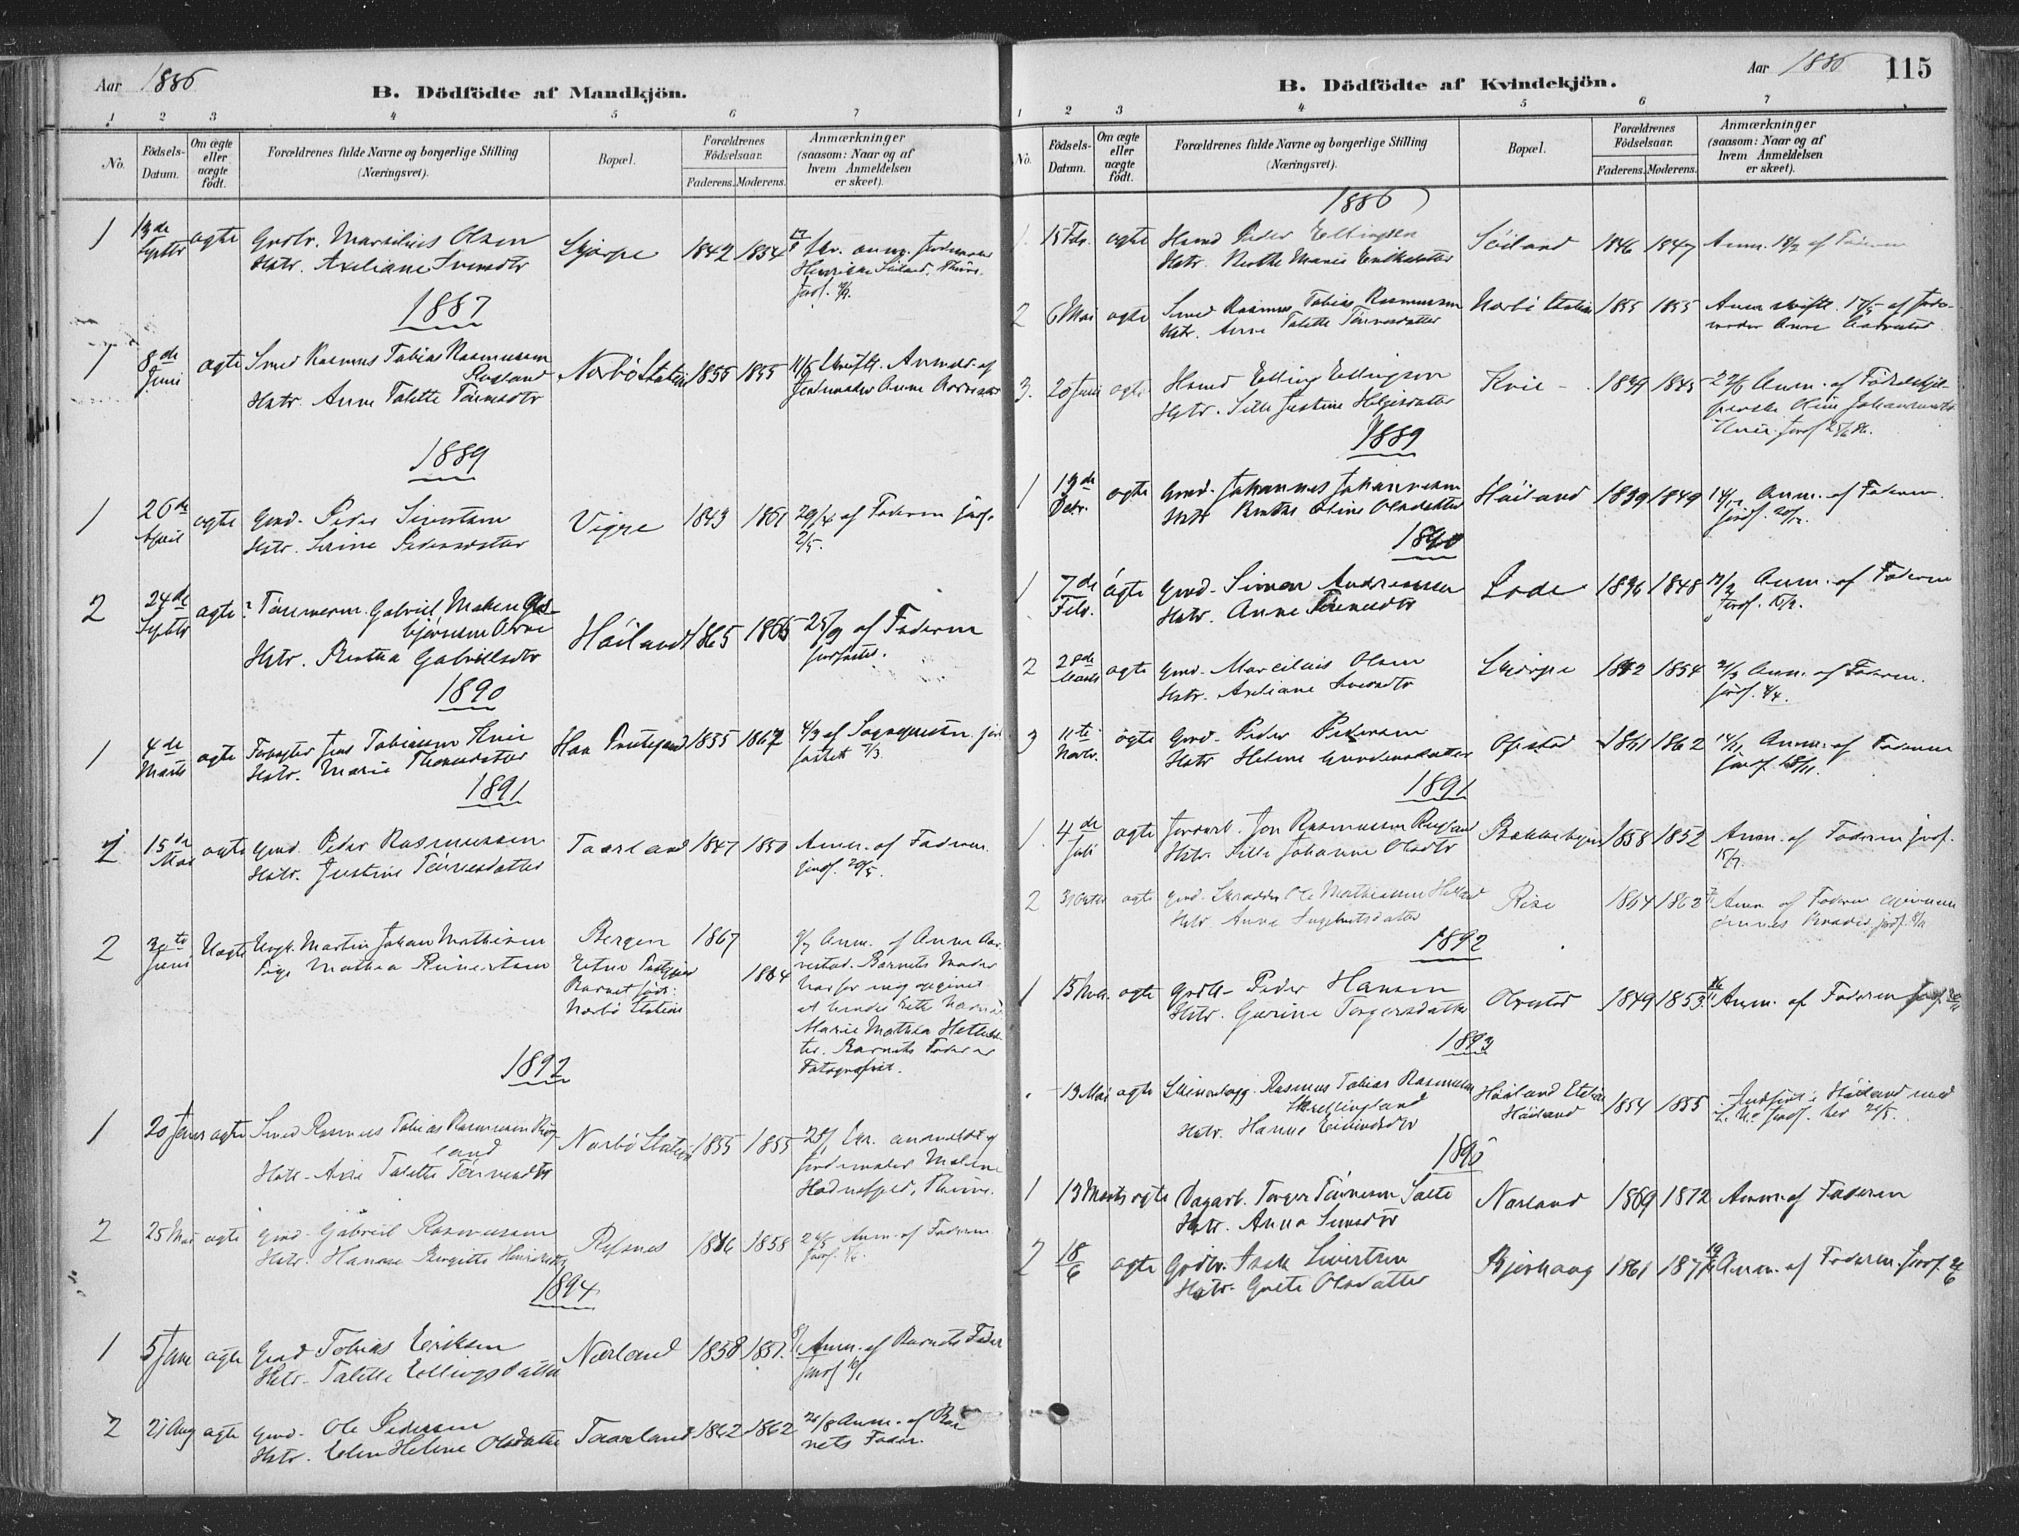 Aar 1886
B. Dödfödte af Mandkjön.
1 2 3 4 5 6 7
No.
Födsels-Datum.
Om ægte eller uægte födt.
Forældrenes fulde Navne og borgerlige Stilling (Næringsvei).
Bopæl.
Forældrenes Födselsaar.
Faderens. Moderens.
Anmærkninger (saasom: Naar og af hvem Anmeldelsen er skeet).
1 13de Septbr ægte Grdbr. Marselius Olsen
Hstr. Axeliane Svensdtr
Skjærpe 1842 1854
1887
1 8de Juni ægte Smed Rasmus Tobias Rasmussen
Rugland
Hstr. Anne Talette Tönnesdtr
Nærbö Station 1855 1855
11/6 Skriftl. Anmeldt af
Jordemoder Anne Aarrestad
1889
1 26de April ægte Grmd. Peder Sivertsen
Hstr. Serine Pedersdatter
Vigre 1843 1861
29/4 af Faderen jordf.
2/5.
2 24de Septbr ægte Tömmerm. Gabriel Malen As-
björnsen Obrei
Hstr. Bertha Gabrielsdtr
Höiland 1865 1866
25/9 af Faderen
jordfæstet.
1890
1 4de Marts ægte Forpagter Jens Tobiassen Kvie
Hstr. Marie Thomasdatter
Haa Prestegaard 1835 1867
4/3 af Sognepresten jord-
fæstet 7/3.
1891
1 15de Mai ægte Grmd. Peder Rasmussen
Hstr. Justine Tönnesdatter
Taarland 1847 1850
Anm. af Faderen
jordf. 20/5.
2 30te Juni Uægte Ungk. Martin Johan Mathisen
Pige Mathea Reinertsen
Bergen
Etne Prestegjæld
Barnet födt:
Nærbö Station
1867
1864
2/7 Anm. af Anne Aar-
restad. Barnets Moder
har for mig opgivet
at hendes rette Navn er
Marie Mathea
Barnets Fader er
Fotografist.
1892
1 20 Janr ægte Smed Rasmus Tobias Rasmussen Rug-
land
Hstr. Ane Talette Tönnesdtr
Nærbö Station 1855 1855
anmeldt af
Jordemoder Malene
Hadnefjeld, Thime.
2 25 Mai ægte Grmd. Gabriel Rasmussen
Hstr. Hanne Birgitte Henriksdtr
Refsnes 1846 1858
Anm. af Faderen
1894
1 5 Jan ægte Grmd Tobias Eriksen
Hstr. Talette Ellingsdatter
Nærland 1858 1851.
Anm. af Barnets Fader
jordf 10/1
2 21 Aug ægte Grmd. Ole Pedersen
Hstr. Elen Helene Olsdatter
Taarland 1862 1862
Anm. af Bar
nets Fader.
Aar 1886 115
B. Dödfödte af Kvindekjön.
1 2 3 4 5 6 7
No.
Födsels-Datum.
Om ægte eller uægte födt.
Forældrenes fulde Navne og borgerlige Stilling (Næringsvei).
Bopæl.
Forældrenes Födselsaar.
Faderens. Moderens.
Anmærkninger (saasom: Naar og af hvem Anmeldelsen er skeet).
1886
1. 15 Febr. ægte Hsmd Peder Ellingsen
Hstr. Berthe Marie Eriksdatter
Söiland 1846 1847 Anm. 18/2 af Faderen
2 6 Mai ægte Smed Rasmus Tobias Rasmussen
Hstr. Anne Talette Tönnesdatter
Nærbö Station 1855 1855
Anm skriftl. 17/5 af Jorde-
moder Anne Aarrestad
3. 20 Juni ægte Hsmd Elling Ellingsen
Hstr. Sille Justine Helgesdatter
Kvie 1849 1845
22/6 Anm. af Födselshjel-
Kvie. jordf 25/6 86.
1889
1 19de Debr. ægte Grmd. Johannes Johannesen
Hstr Berthe Oline Olsdatter
Höiland 1839 1849
Anm. af Faderen.
jordf. 20/12.
1890
1 7de Febr. ægte Grmd. Simon Andreassen
Hstr. Anne Tönnesdtr
Lode 1836 1848
Anm. af Faderen
jordf. 15/2.
2 28de Marts ægte Grmd. Marcelius Olsen
Hstr. Axeliane Svensdtr
Skjærpe 1842 1854
Anm. af Faderen.
jordf. 4/4.
3 11te Novbr. ægte Grmd. Peder Pedersen
Hstr Helene Gundersdatter
Opstad 1861 1862
14/11 Anm. af Faderen
jordf. 18/11.
1891
1. 4de Juli ægte Jordarb. Jon Rasmussen Rugland
Hstr. Sille Johanne Olsdtr
Bakkebygd 1858 1852
Anm. af Faderen jordf.
15/7.
2 31 Octbr ægte Grmd. Skrædder Ole Mathiassen Helland
Hstr. Anna Ingebretsdatter
Risa 1864 1862
Anm af Faderen
1892
1 15 Novb. ægte Grdbr. Peder Hansen
Hstr. Gurine Torgersdatter
Obrestad 1849 1853
Anm. af Faderen jordf.
1893
13 Mai ægte Skinnelægg. Rasmus Tobias Rasmussen
Skrettingland
Hstr. Hanne Eivindsdtr
Höiland Station
Höiland
1854 1855
Indfört i Höiland med
L. No. jordf. her 20/5.
1895
1 13 Marts ægte Dagarb. Torger Tönnesen Salte
Hstr. Anna Simsdtr
Nærland 1869 1872 Anm. af Faderen
2 18/6 ægte Grdbr. Isak Sivertsen
Hstr. Grete Olsdatter
Bjerhaug 1861 1871
19/6 Anm. af Faderen. jordf. 21/6